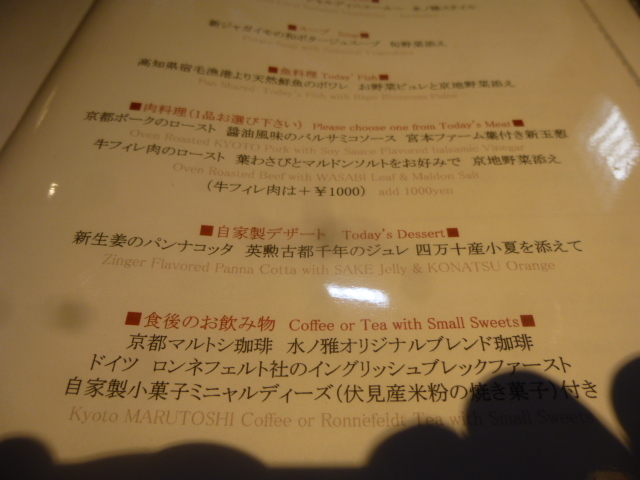 水ノ雅スタイル
■スープ Soup■
新ジャガイモの和ポタージュスープ 旬野菜添え
■魚料理 Today's Fish■
高知県宿毛漁港より天然鮮魚のポワレ お野菜ピュレと京地野菜添え
■肉料理(1品お選び下さい) Please choose one from Today's Meat■
京都ポークのロースト 醤油風味のバルサミコソース 宮本ファーム葉付き新玉葱
Oven Roasted KYOTO Pork with Soy Sauce Flavored balsamic Vinegar
牛フィレ肉のロースト 葉わさびとマルドンソルトをお好みで 京地野菜添え
Oven Roasted Beef with WASABI Leaf & Maldon Salt
(牛フィレ肉は+¥1000) add 1000yen
■自家製デザート Today's Dessert■
新生姜のパンナコッタ 英勲古都千年のジュレ 四万十産小夏を添えて
Zinger Flavored Panna Cotta with SAKE Jelly & KONATSU Orange
■食後のお飲み物 Coffee or Tea with Small Sweets■
京都マルトシ珈琲 水ノ雅オリジナルブレンド珈琲
ドイツ ロンネフェルト社のイングリッシュブレックファースト
自家製小菓子ミニャルディーズ(伏見産米粉の焼き菓子)付き
Kyoto MARUTOSHI Coffee or Ronnefeldt Tea with Small Sweets